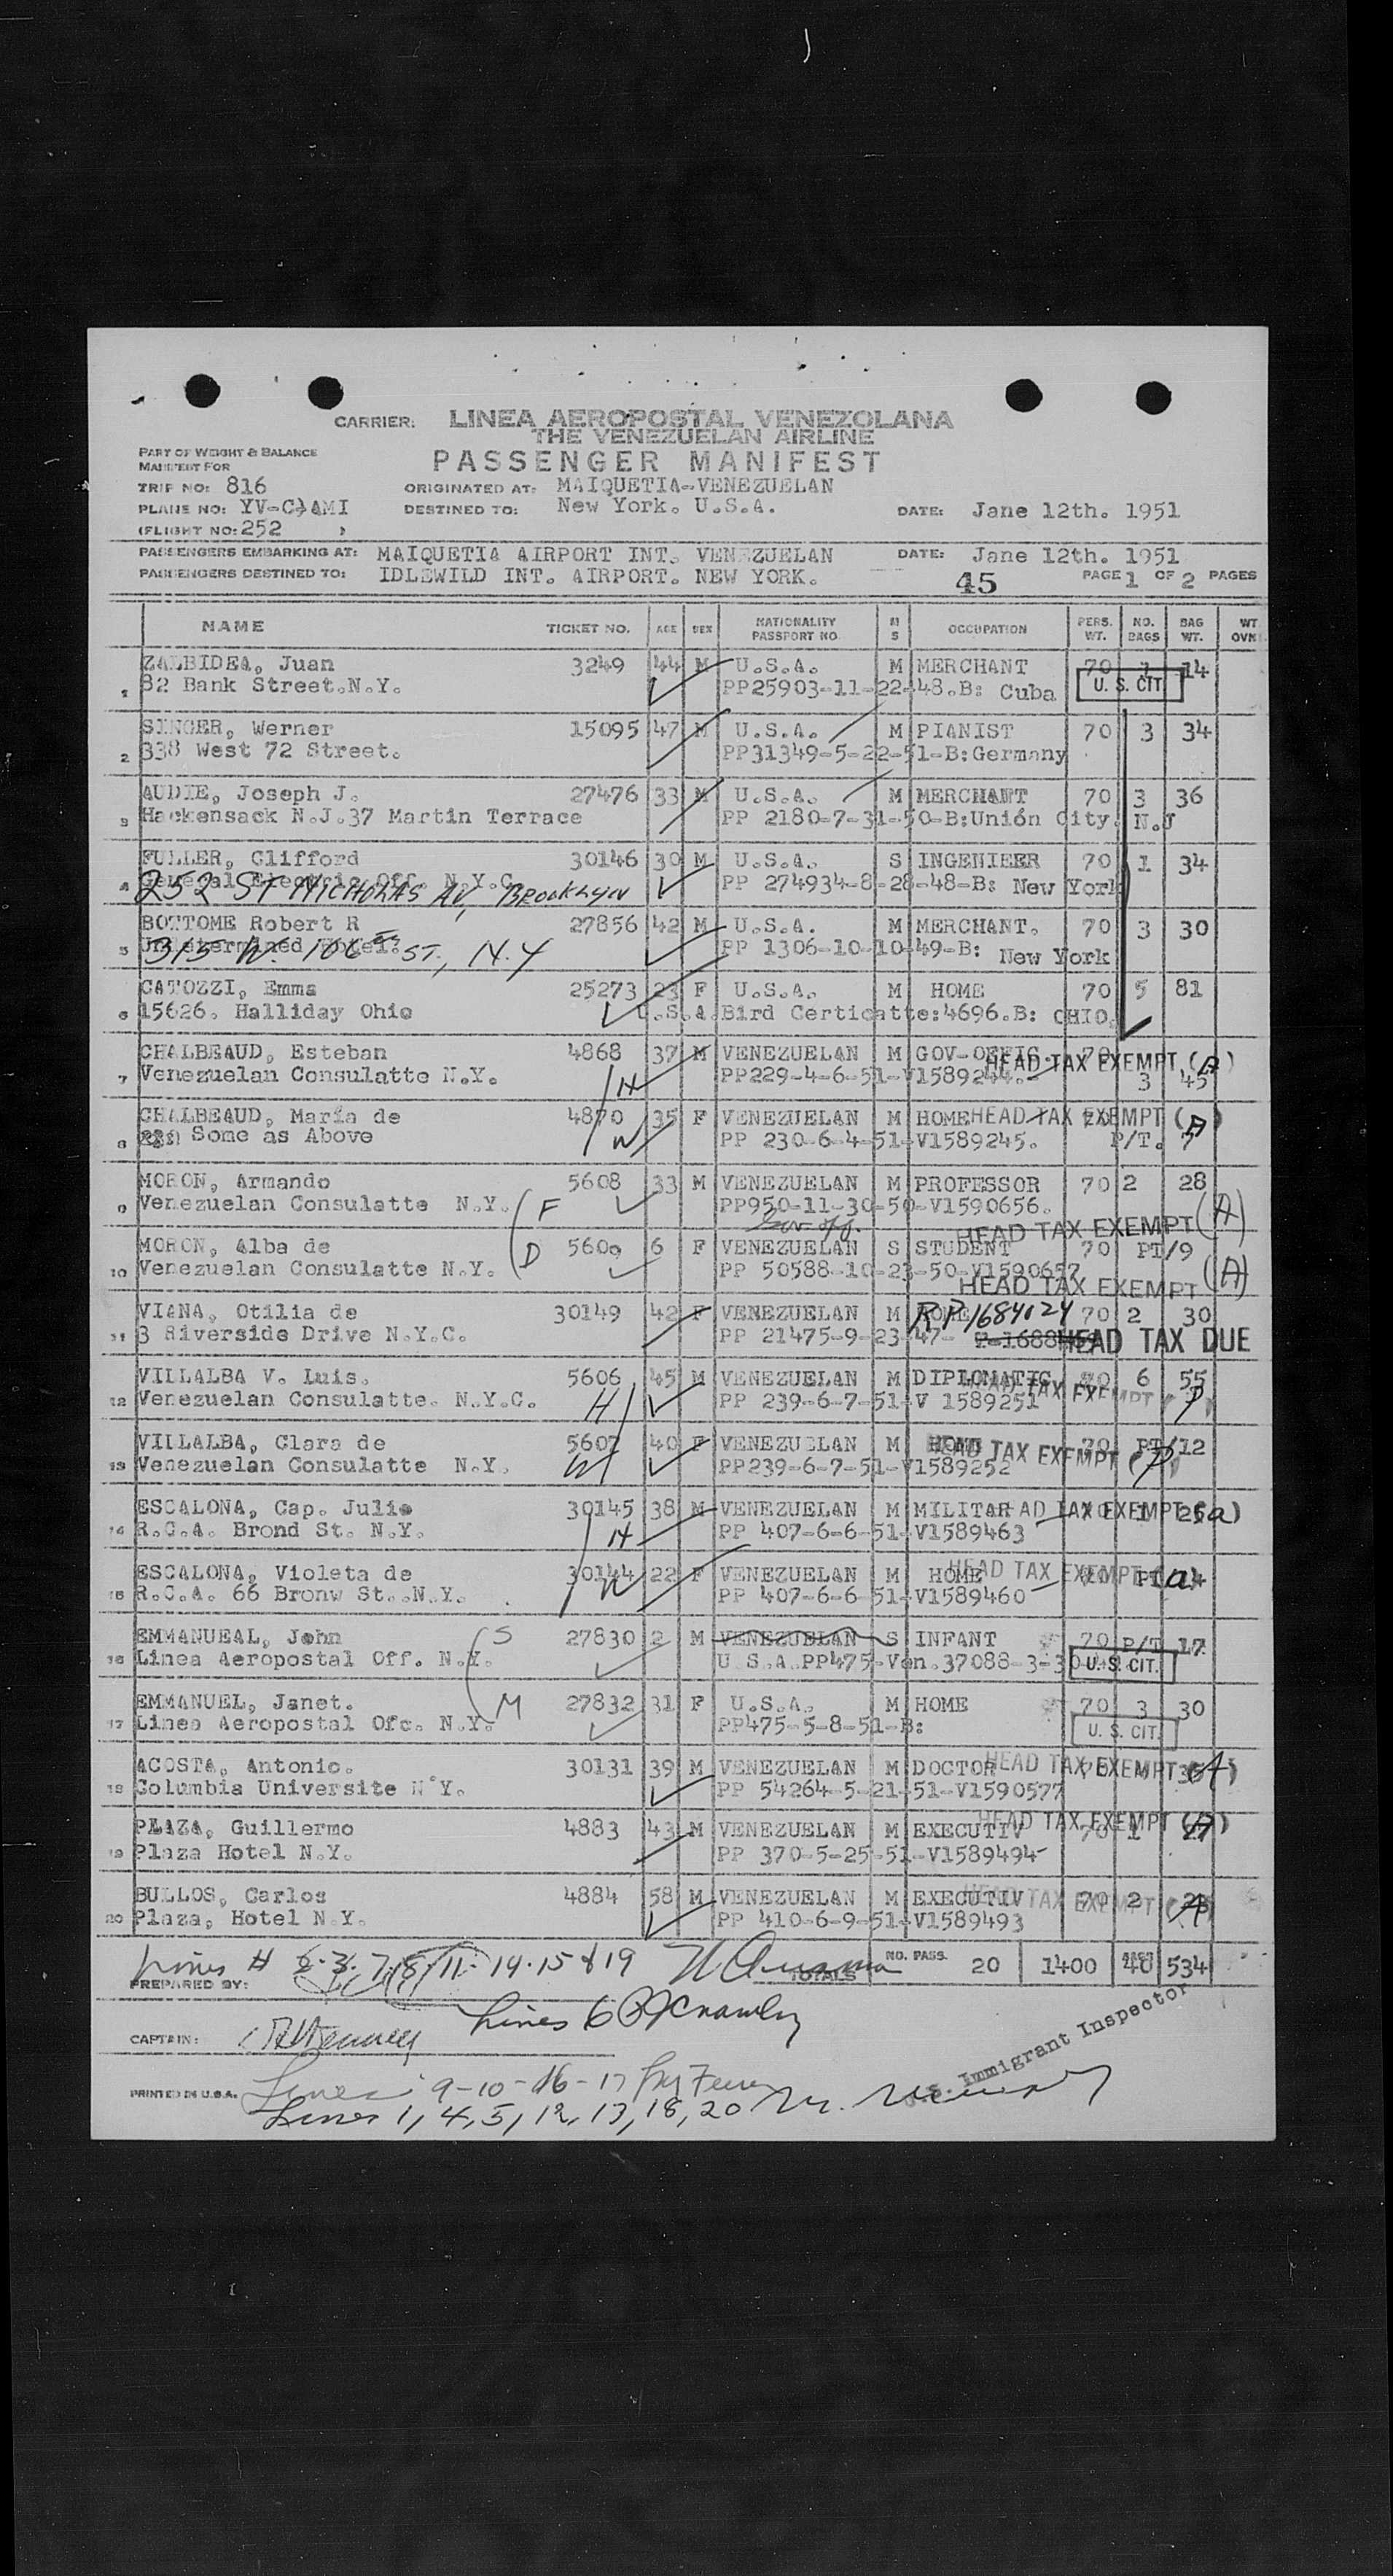 CARRIER: LINEA AEROPOSTAL VENEZOLANA
THE VENEZUELAN AIRLINE
PART OF WEIGHT & BALANCE
MANIFEST FOR
PASSENGER MANIFEST
TRIP NO: 816 ORIGINATED AT: MAIQUETIA-VENEZUELAN
PLANE NO: YV-C-AMI DESTINED TO: New York. U.S.A. DATE: Jane 12th. 1951
(FLIGHT NO: 252 )
PASSENGERS EMBARKING AT: MAIQUETIA AIRPORT INT. VENEZUELAN DATE: Jane 12th. 1951
PASSENGERS DESTINED TO: IDLEWILD INT. AIRPORT. NEW YORK. 45 PAGE 1 OF 2 PAGES
NAME TICKET NO. AGE SEX NATIONALITY PASSPORT NO M S OCCUPATION PERS. WT. NO. BAGS BAG WT. WT OVN
ZALBIDEA, Juan 3249 44 M U.S.A. M MERCHANT 70 1 14
1 82 Bank Street.N.Y. PP25903-11-22-48.B: Cuba U. S. CIT.
SINGER, Werner 15095 47 M U.S.A. M PIANIST 70 3 34
2 338 West 72 Street. PP31349-5-22-51-B:Germany
AUDIE, Joseph J. 27476 33 M U.S.A. M MERCHANT 70 3 36
3 Hackensack N.J.37 Martin Terrace PP 2180-7-31-50-B:Unión City. N.J
FULLER, Clifford 30146 30 M U.S.A. S INGENIEER 70 1 34
4 General Electric Off. N.Y.C. PP 274934-8-28-48-B: New York
252 ST NICHOLAS AV, BROOKLYN
BOTTOME Robert R 27856 42 M U.S.A. M MERCHANT. 70 3 30
5 PP 1306-10-10-49-B: New York
315 W. 106 ST., N.Y
CATOZZI, Emma 25273 23 F U.S.A. M HOME 70 5 81
6 15626. Halliday Ohio U.S.A.Bird Certicatte:4696.B: OHIO.
CHALBEAUD, Esteban 4868 37 M VENEZUELAN M GOV-OFFIC. 70 HEAD TAX EXEMPT (A)
7 Venezuelan Consulatte N.Y. H PP229-4-6-51-V1589244. 3 45
CHALBEAUD, María de 4870 35 F VENEZUELAN M HOME HEAD TAX EXEMPT (A)
8 Some as Above W PP 230-6-4-51-V1589245. P/T. 7
MORON, Armando 5608 33 M VENEZUELAN M PROFESSOR 70 2 28
9 Venezuelan Consulatte N.Y. F PP950-11-30-50-V1590656.
Gov off. HEAD TAX EXEMPT (A)
MORON, Alba de D 5609 6 F VENEZUELAN S STUDENT 70 PT/9
10 Venezuelan Consulatte N.Y. PP 50588-10-23-50-V1590657
HEAD TAX EXEMPT (A)
VIANA, Otilia de 30149 42 F VENEZUELAN M HOME R.P.1684024 70 2 30
11 3 Riverside Drive N.Y.C. PP 21475-9-23-47- HEAD TAX DUE
VILLALBA V. Luis. 5606 45 M VENEZUELAN M DIPLOMATIC 70 6 55
12 Venezuelan Consulatte. N.Y.C. H PP 239-6-7-51-V 1589251 HEAD TAX EXEMPT (P)
VILLALBA, Clara de 5607 40 F VENEZUELAN M HOME 70 PT/12
13 Venezuelan Consulatte N.Y. W PP239-6-7-51-V1589252 HEAD TAX EXEMPT (P)
ESCALONA, Cap. Julio 30145 38 M VENEZUELAN M MILITAR HEAD TAX EXEMPT (a)
14 R.C.A. Brond St. N.Y. H PP 407-6-6-51-V1589463
ESCALONA, Violeta de 30144 22 F VENEZUELAN M HOME HEAD TAX EXEMPT (a)
15 R.C.A. 66 Bronw St..N.Y. W PP 407-6-6-51-V1589460
EMMANUEAL, John S 27830 2 M VENEZUELAN S INFANT 70 P/T 17
16 Linea Aeropostal Off. N.Y. U S.A.PP475-Ven.37088-3-30 U.S. CIT.
EMMANUEL, Janet. M 27832 31 F U.S.A. M HOME 70 3 30
17 Linea Aeropostal Ofc. N.Y. PP475-5-8-51-B: U. S. CIT.
ACOSTA, Antonio. 30131 39 M VENEZUELAN M DOCTOR HEAD TAX EXEMPT (A)
18 Columbia Universite N.Y. PP 54264-5-21-51-V1590577
PLAZA, Guillermo 4883 43 M VENEZUELAN M EXECUTIV 70 1 HEAD TAX EXEMPT (A)
19 Plaza Hotel N.Y. PP 370-5-25-51-V1589494
BULLOS, Carlos 4884 58 M VENEZUELAN M EXECUTIV 70 2 HEAD TAX EXEMPT (A)
20 Plaza, Hotel N.Y. PP 410-6-9-51-V1589493
Lines # 2.3.7.8.11.14.15 & 19 TOTALS NO. PASS. 20 1400 40 534
PREPARED BY:
Lines 6
CAPTAIN:
U.S. Immigrant Inspector
PRINTED IN U.S.A. Lines 9-10-16-17
Lines 1, 4, 5, 12, 13, 18, 20